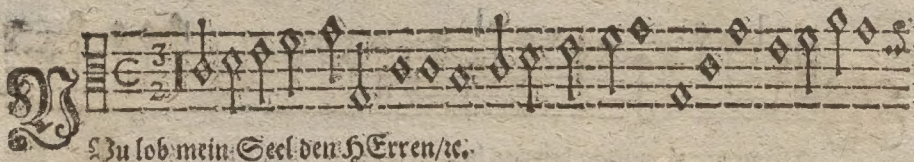 NUu lob mein Seel den HErren/ꝛc.